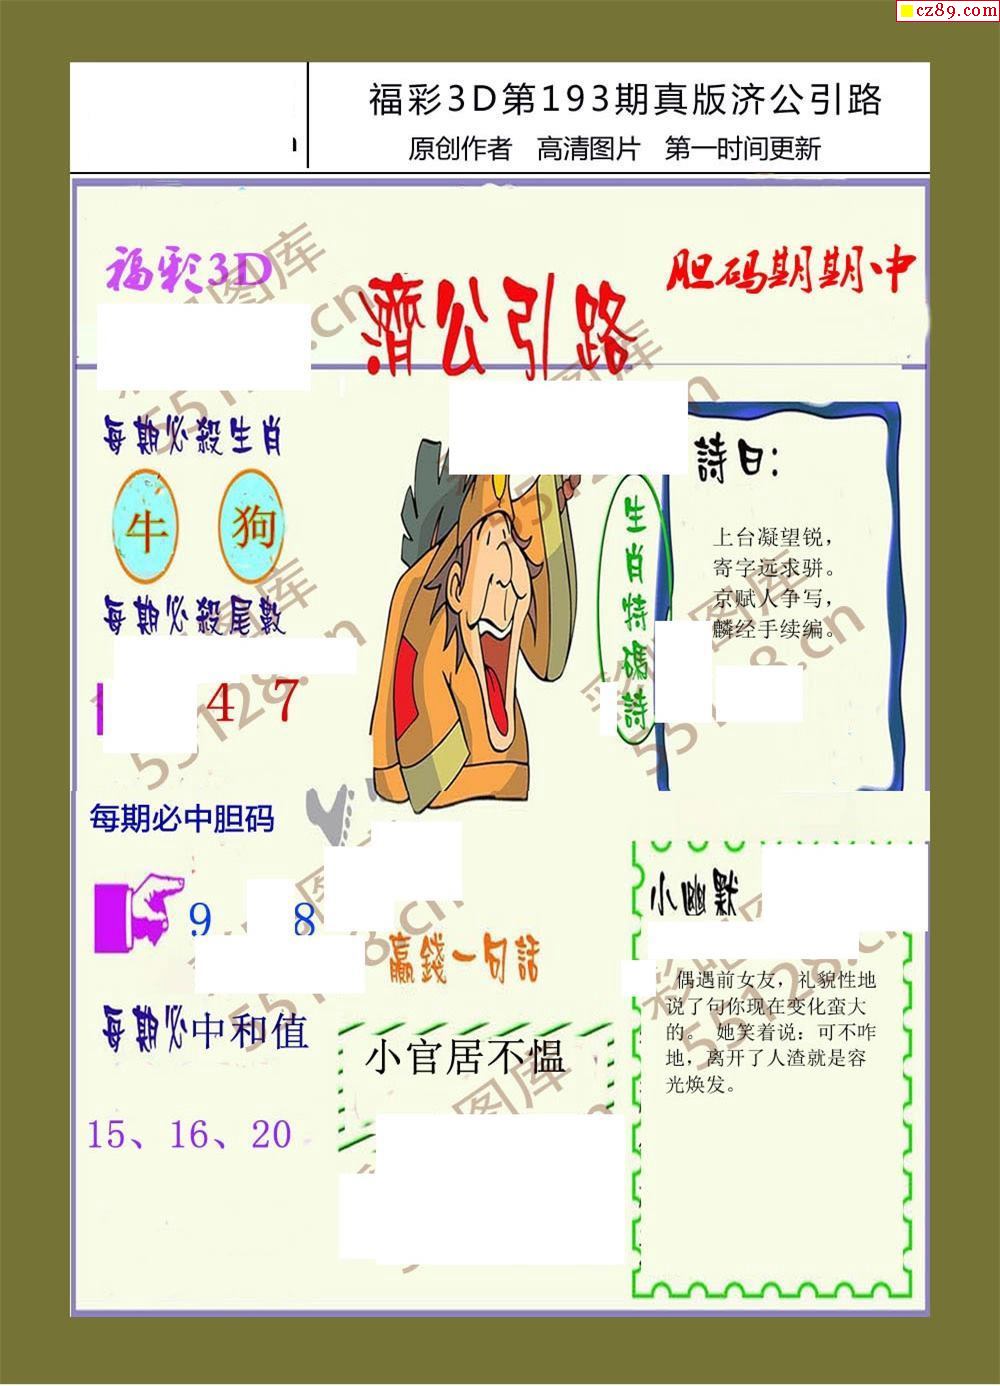 cz89.com
福彩3D第193期真版济公引路
原创作者 高清图片 第一时间更新
福彩3D
濟公引路
胆码期期中
每期必殺生肖
牛 狗
每期必殺尾數
4 7
生肖特碼詩
詩曰:
上台凝望锐，
寄字远求骈。
京赋人争写，
麟经手续编。
每期必中胆码
9 8
每期必中和值
15、16、20
赢錢一句話
小官居不愠
小幽默
偶遇前女友，礼貌性地
说了句你现在变化蛮大
的。 她笑着说：可不咋
地，离开了人渣就是容
光焕发。
55128.cn
55128.cn
55128.cn
55128.cn